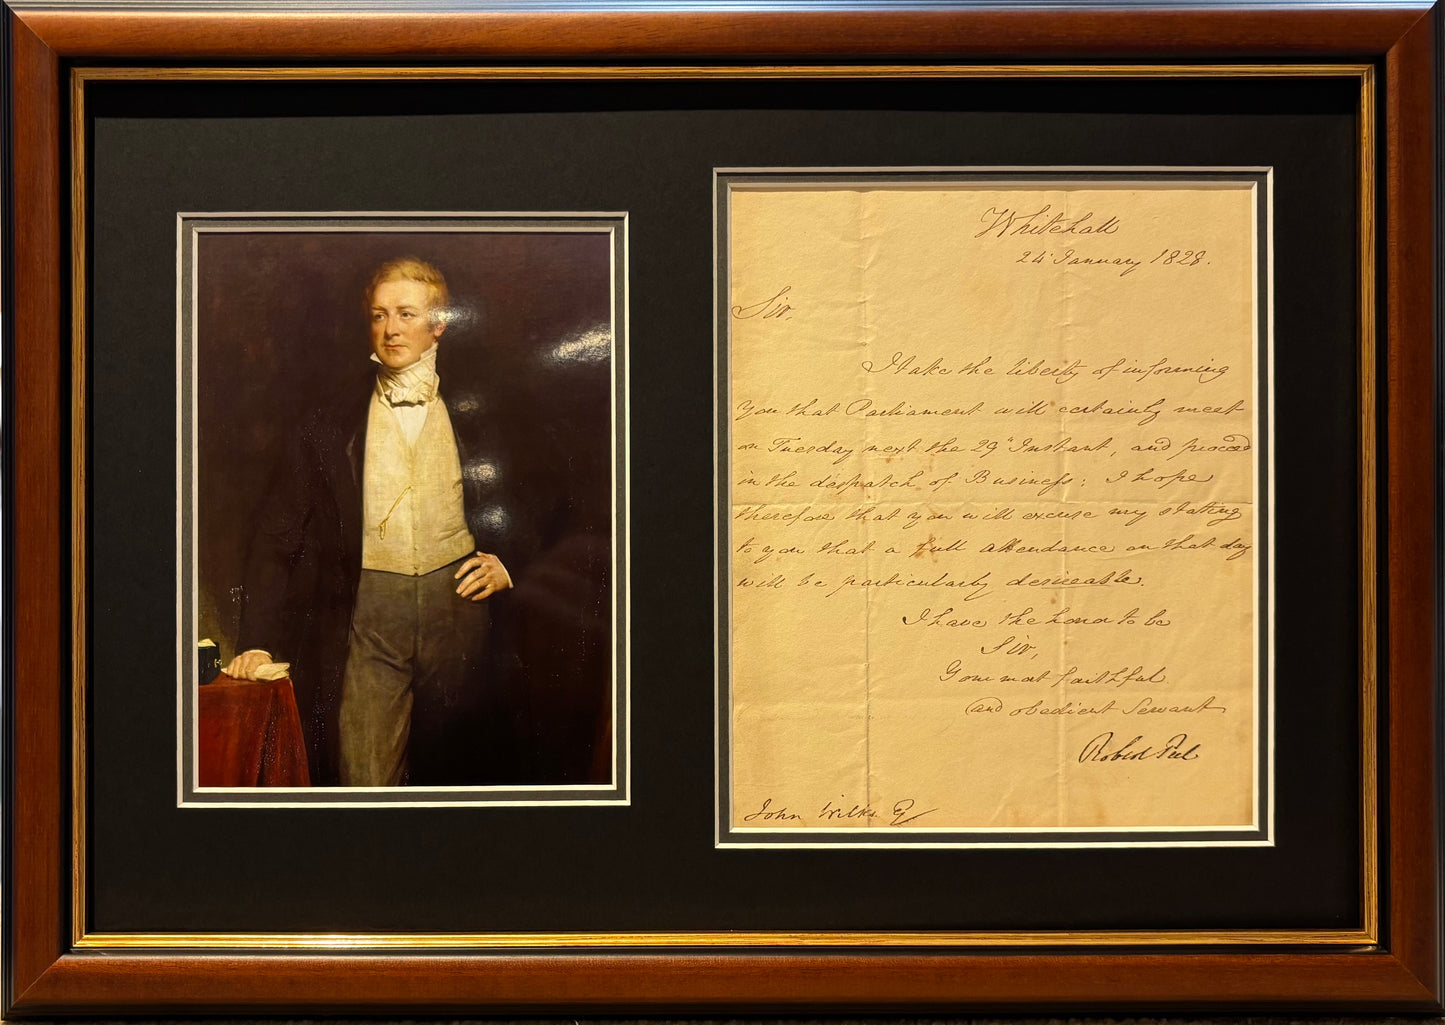 Whitehall
24 January 1828.
Sir,
I take the liberty of informing
you that Parliament will certainly meet
on Tuesday next the 29th Instant, and proceed
in the despatch of Business: I hope
therefore that you will excuse my stating
to you that a full attendance on that day
will be particularly desireable.
I have the honor to be
Sir,
Your most faithful
and obedient Servant
Robert Peel
John Wilks Eq